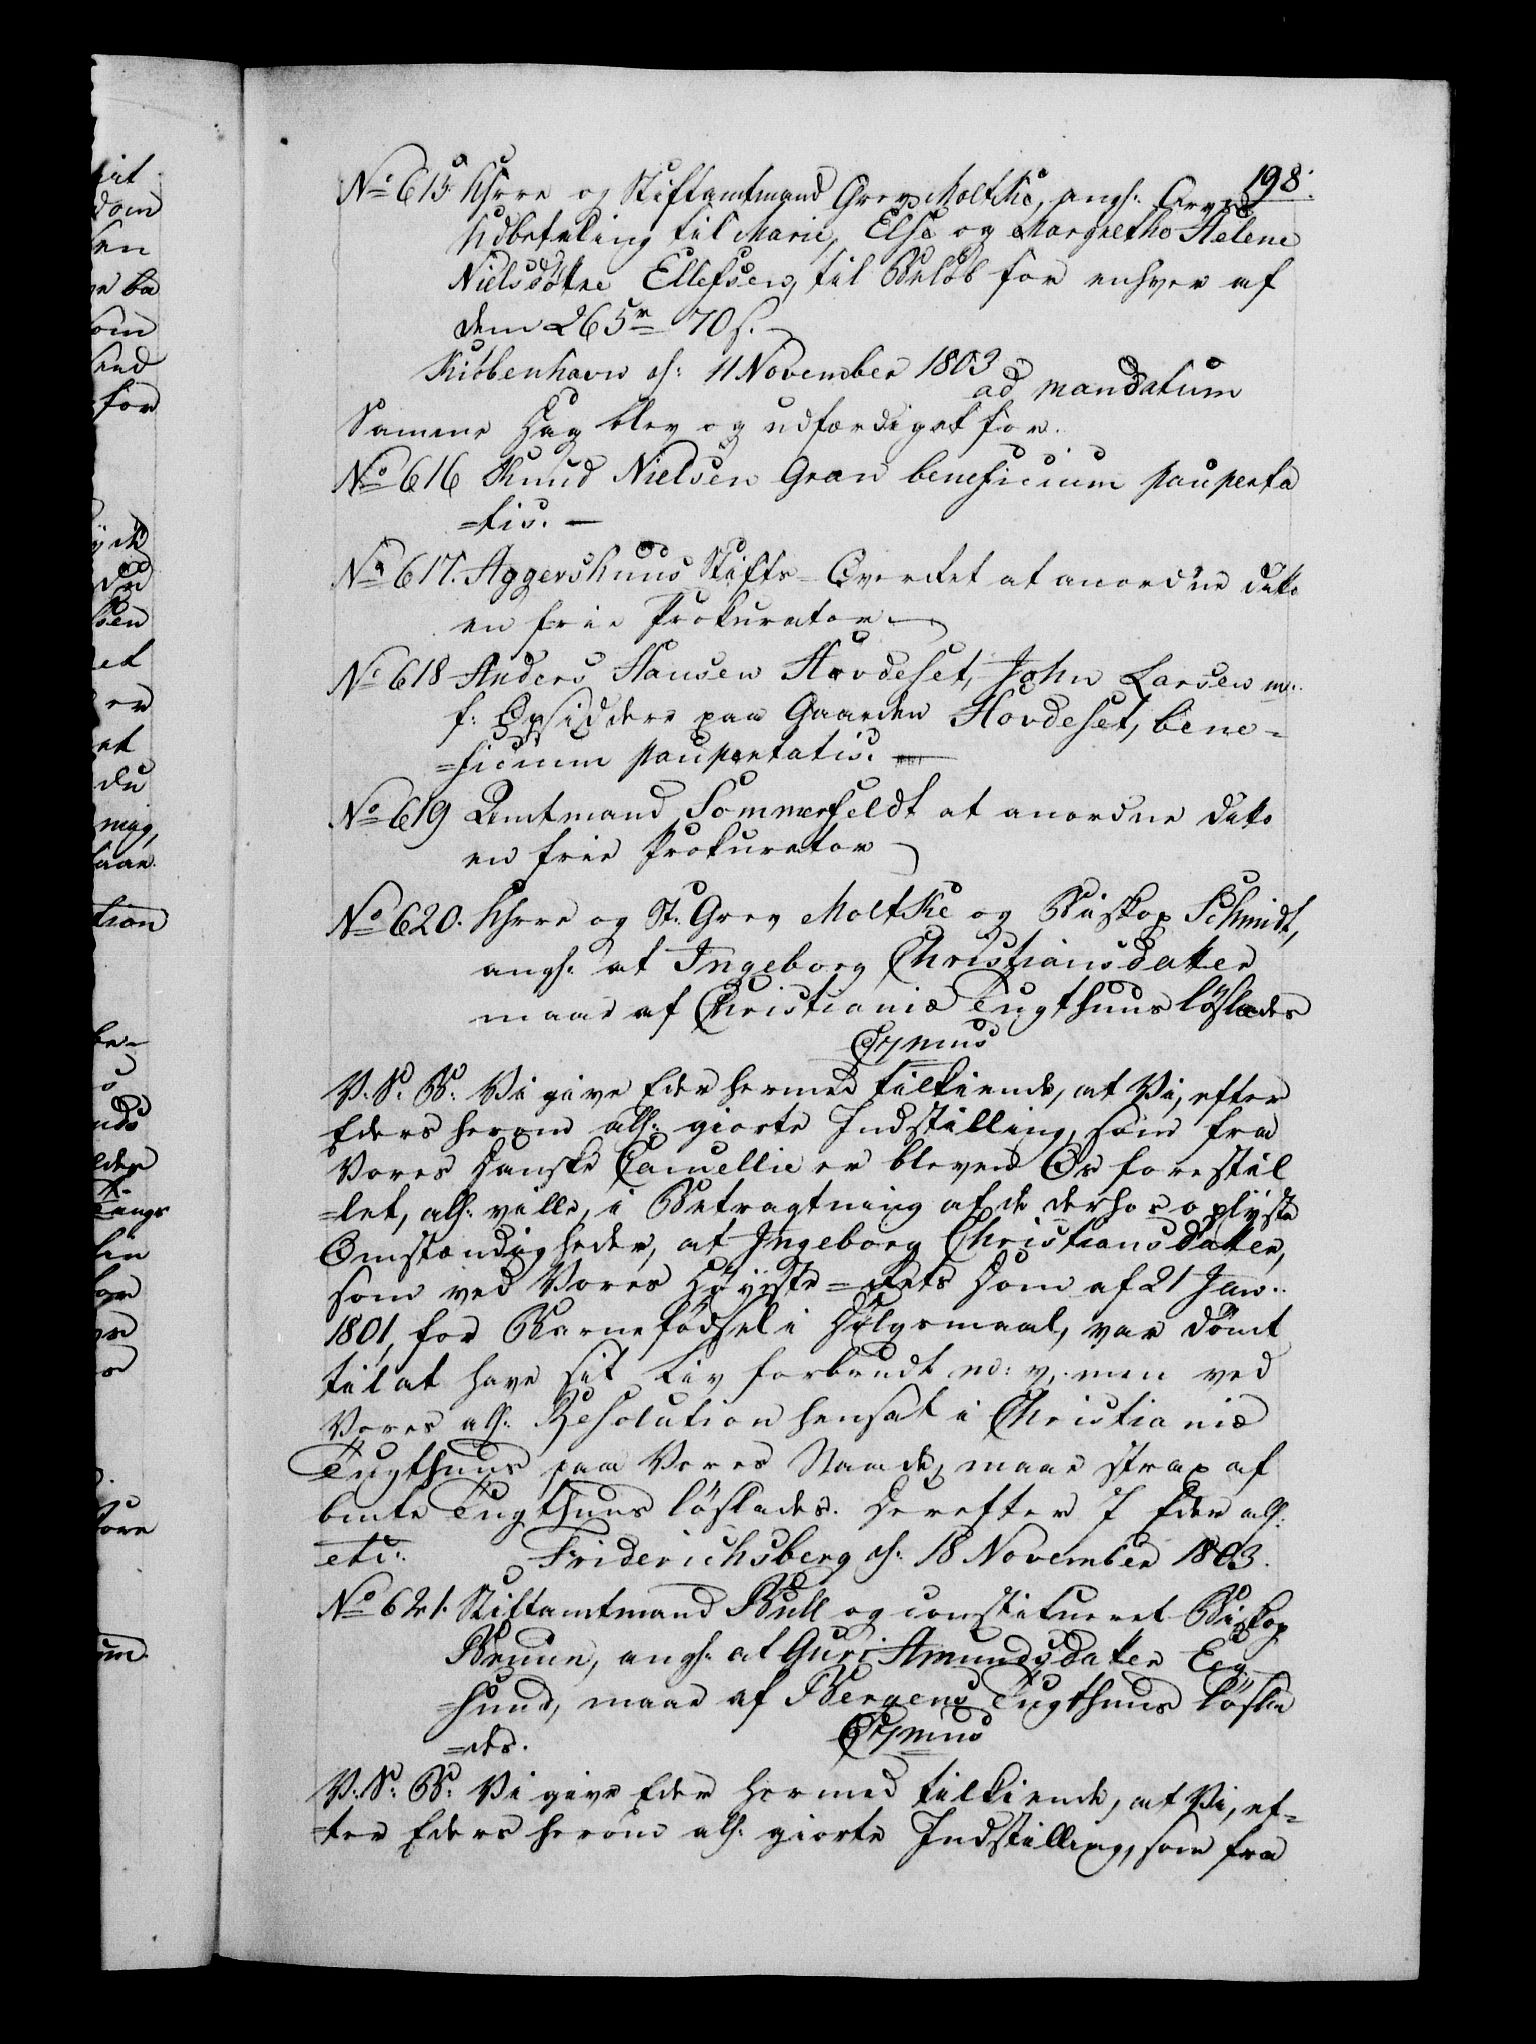 198.
No 615. Khrre og Stiftamtmand Grev Moltke, angh: Arve
Udbetaling til Marie, Else og Margrethe Helene
Nielsdøtre Ellefsen, til Beløb for enhver af
dem 265 r 70 s.
Kiøbenhavn d: 11 November 1803
ad mandatum
Samme Dag blev og udfærdiget for.
No 616 Knud Nielsen Gran beneficium pauperta
=tis. —
No 617. Aggershuus Stifts-Overret at anordne ditto
en frie Prokurator
No 618 Anders Hansen Hovdeset, John Larsen m:
f: Opsiddere paa Gaarden Hovdeset, bene=
=ficium paupertatis. —
No 619 Amtmand Sommerfeldt at anordne ditto
en frie Prokurator
No 620. Khrre og St: Grev Moltke og Biskop Schmidt,
angh: at Ingeborg Christiansdatter
maae af Christiania Tugthuus løslades
V: S: B: Vi give Eder hermed tilkiende, at Vi, efter
Eders herom allh: giorte Indstilling, som fra
Vores Danske Cancellie er bleven Os forestil
=let, allh: ville, i Betragtning af de derhos oplyste
Omstændigheder, at Ingeborg Christiansdatter,
som ved Vores Høyeste-Rets Dom af 21 Jan:
1801, for Barnefødsel i Dølgsmaal, var dømt
til at have sit Liv forbrudt m: v. men ved
Vores allh: Resolution hensat i Christiania
Tugthuus paa Vores Naade, maae strax af
bmte Tugthuus løslades. Derefter I Eder allh:
etc: Friderichsberg d: 18 November 1803.
No 621. Stiftamtmand Bull og constitueret Biskop
Bruun, angh: at Guri Amundsdatter Eeg
=hund, maae af Bergens Tugthuus løsla
=des.
V: S: B: Vi give Eder hermed tilkiende, at Vi, ef=
=ter Eders herom allh: giorte Indstilling, som fra